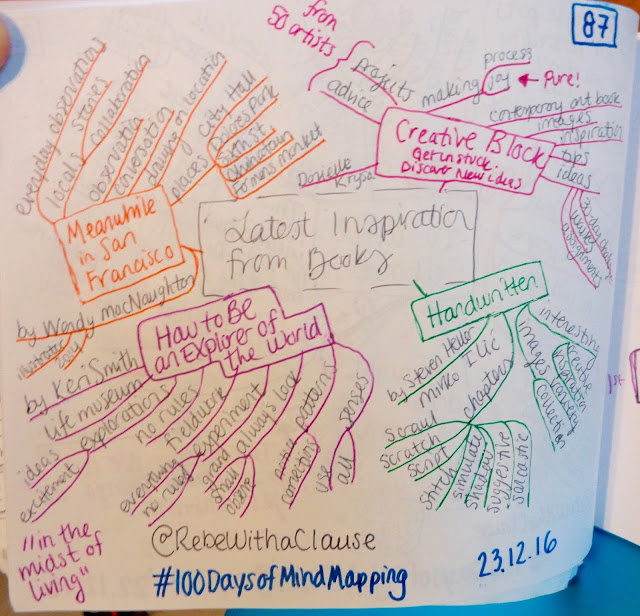 87
from
50 artists
projects
advice
making
process
joy
Pure!
contemporary art book
images
inspiration
tips
ideas
30-day challenge
assignments
Creative Block
Get unstuck
Discover New ideas
Danielle
Krysa
everyday observations
stories
locals
collaboration
observation
conversation
drawing on location
places
City Hall
Dolores Park
Sixth St
Chinatown
Farmers market
Meanwhile
in San
Francisco
by Wendy MacNaughton
illustrator
2014
Latest Inspiration
from Books
Handwritten
by Steven Heller
Mirko Ilić
chapters
scrawl
scratch
script
stitch
simulate
shadow
suggestive
sarcastic
images
interesting
creative
inspiration
collection
How to Be
an Explorer of
the World
by Keri Smith
life museum
explorations
ideas
excitement
no rules
fieldwork
experiment
everything
no rules
always look
around
patterns
notice
connections
senses
use
all
"in the
midst of
living"
@RebeWithaClause
#100DaysofMindMapping
23.12.16